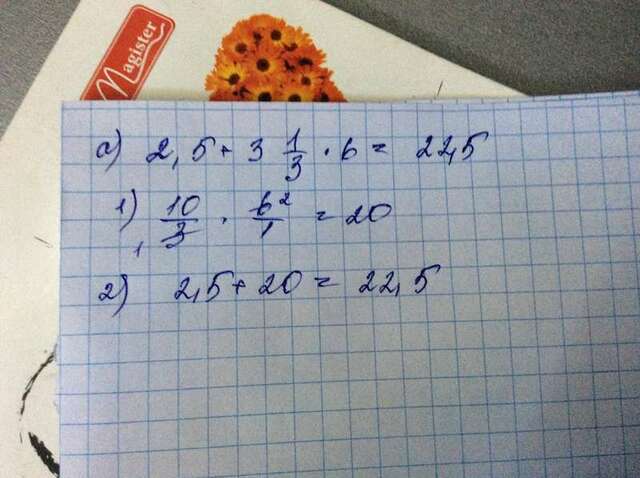 Magister
a) 2,5 + 3 1/3 · 6 = 22,5
1) 10/3 · 6/1 2 = 20
1
2) 2,5 + 20 = 22,5